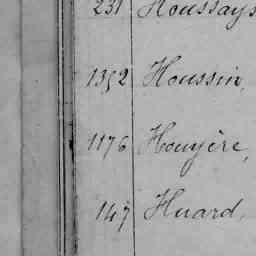 231 Houssays
1392 Houssin,
1176 Houyère,
147 Huard,